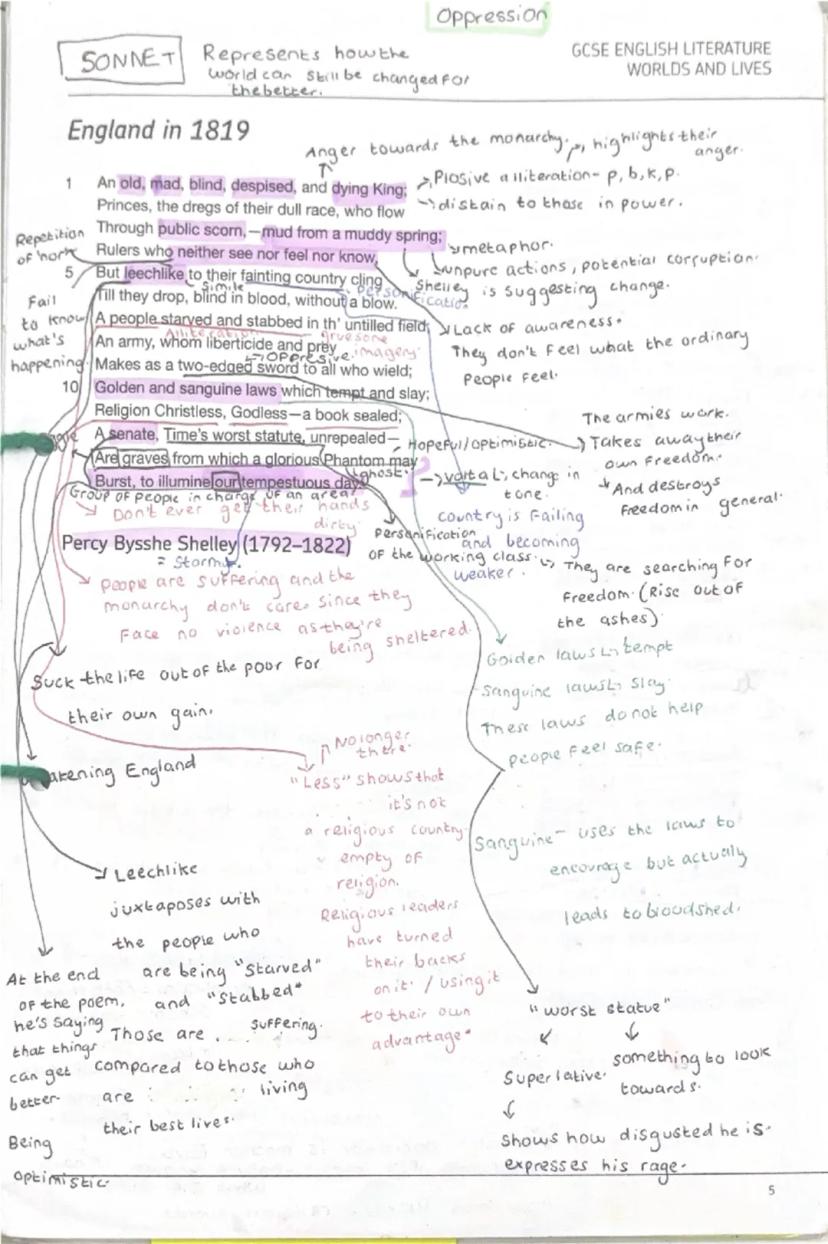 Oppression
SONNET
Represents how the
world can still be changed for
the better.
GCSE ENGLISH LITERATURE
WORLDS AND LIVES
England in 1819
Anger towards the monarchy. highlights their
anger.
1 An old, mad, blind, despised, and dying King;
Plosive alliteration- p, b, k, p.
Princes, the dregs of their dull race, who flow
distain to those in power.
Through public scorn,—mud from a muddy spring;
Repetition
of 'nor'
Rulers who neither see nor feel nor know,
metaphor.
unpure actions, potential corruption.
5 But leechlike to their fainting country cling
Simile
Shelley is suggesting change.
Till they drop, blind in blood, without a blow.
Personification
Fail
to know
what's
happening
A people starved and stabbed in th' untilled field;
Lack of awareness.
They don't feel what the ordinary
people feel.
Alliteration gruesome
imagery.
An army, whom liberticide and prey
oppressive.
Makes as a two-edged sword to all who wield;
10 Golden and sanguine laws which tempt and slay;
Religion Christless, Godless—a book sealed;
The armies work.
Takes away their
own freedom.
And destroys
freedom in general.
A senate, Time's worst statute, unrepealed—
Hopeful/optimistic.
Are graves from which a glorious Phantom may
ghost.
Burst, to illumine our tempestuous day.
volta change in
tone.
Group of people in charge of an area?
Don't ever get their hands
dirty.
country is failing
and becoming
weaker.
Personification
of the working class.
They are searching for
freedom. (Rise out of
the ashes).
Percy Bysshe Shelley (1792–1822)
= Stormy.
People are suffering and the
monarchy don't care since they
face no violence as they're
being sheltered.
Golden laws tempt
Sanguine laws slay
These laws do not help
people feel safe.
Suck the life out of the poor for
their own gain.
No longer
there.
England
"Less" shows that
it's not
a religious country
empty of
religion.
Religious leaders
have turned
their backs
on it / using it
to their own
advantage"
Sanguine- uses the laws to
encourage but actually
leads to bloodshed.
Leechlike
juxtaposes with
the people who
are being "Starved"
and "Stabbed"
Those are suffering.
compared to those who
are living
their best lives.
At the end
of the poem,
he's saying
that things
can get
better
Being
optimistic.
"worst statue"
Superlative.
something to look
towards.
Shows how disgusted he is.
expresses his rage.
5